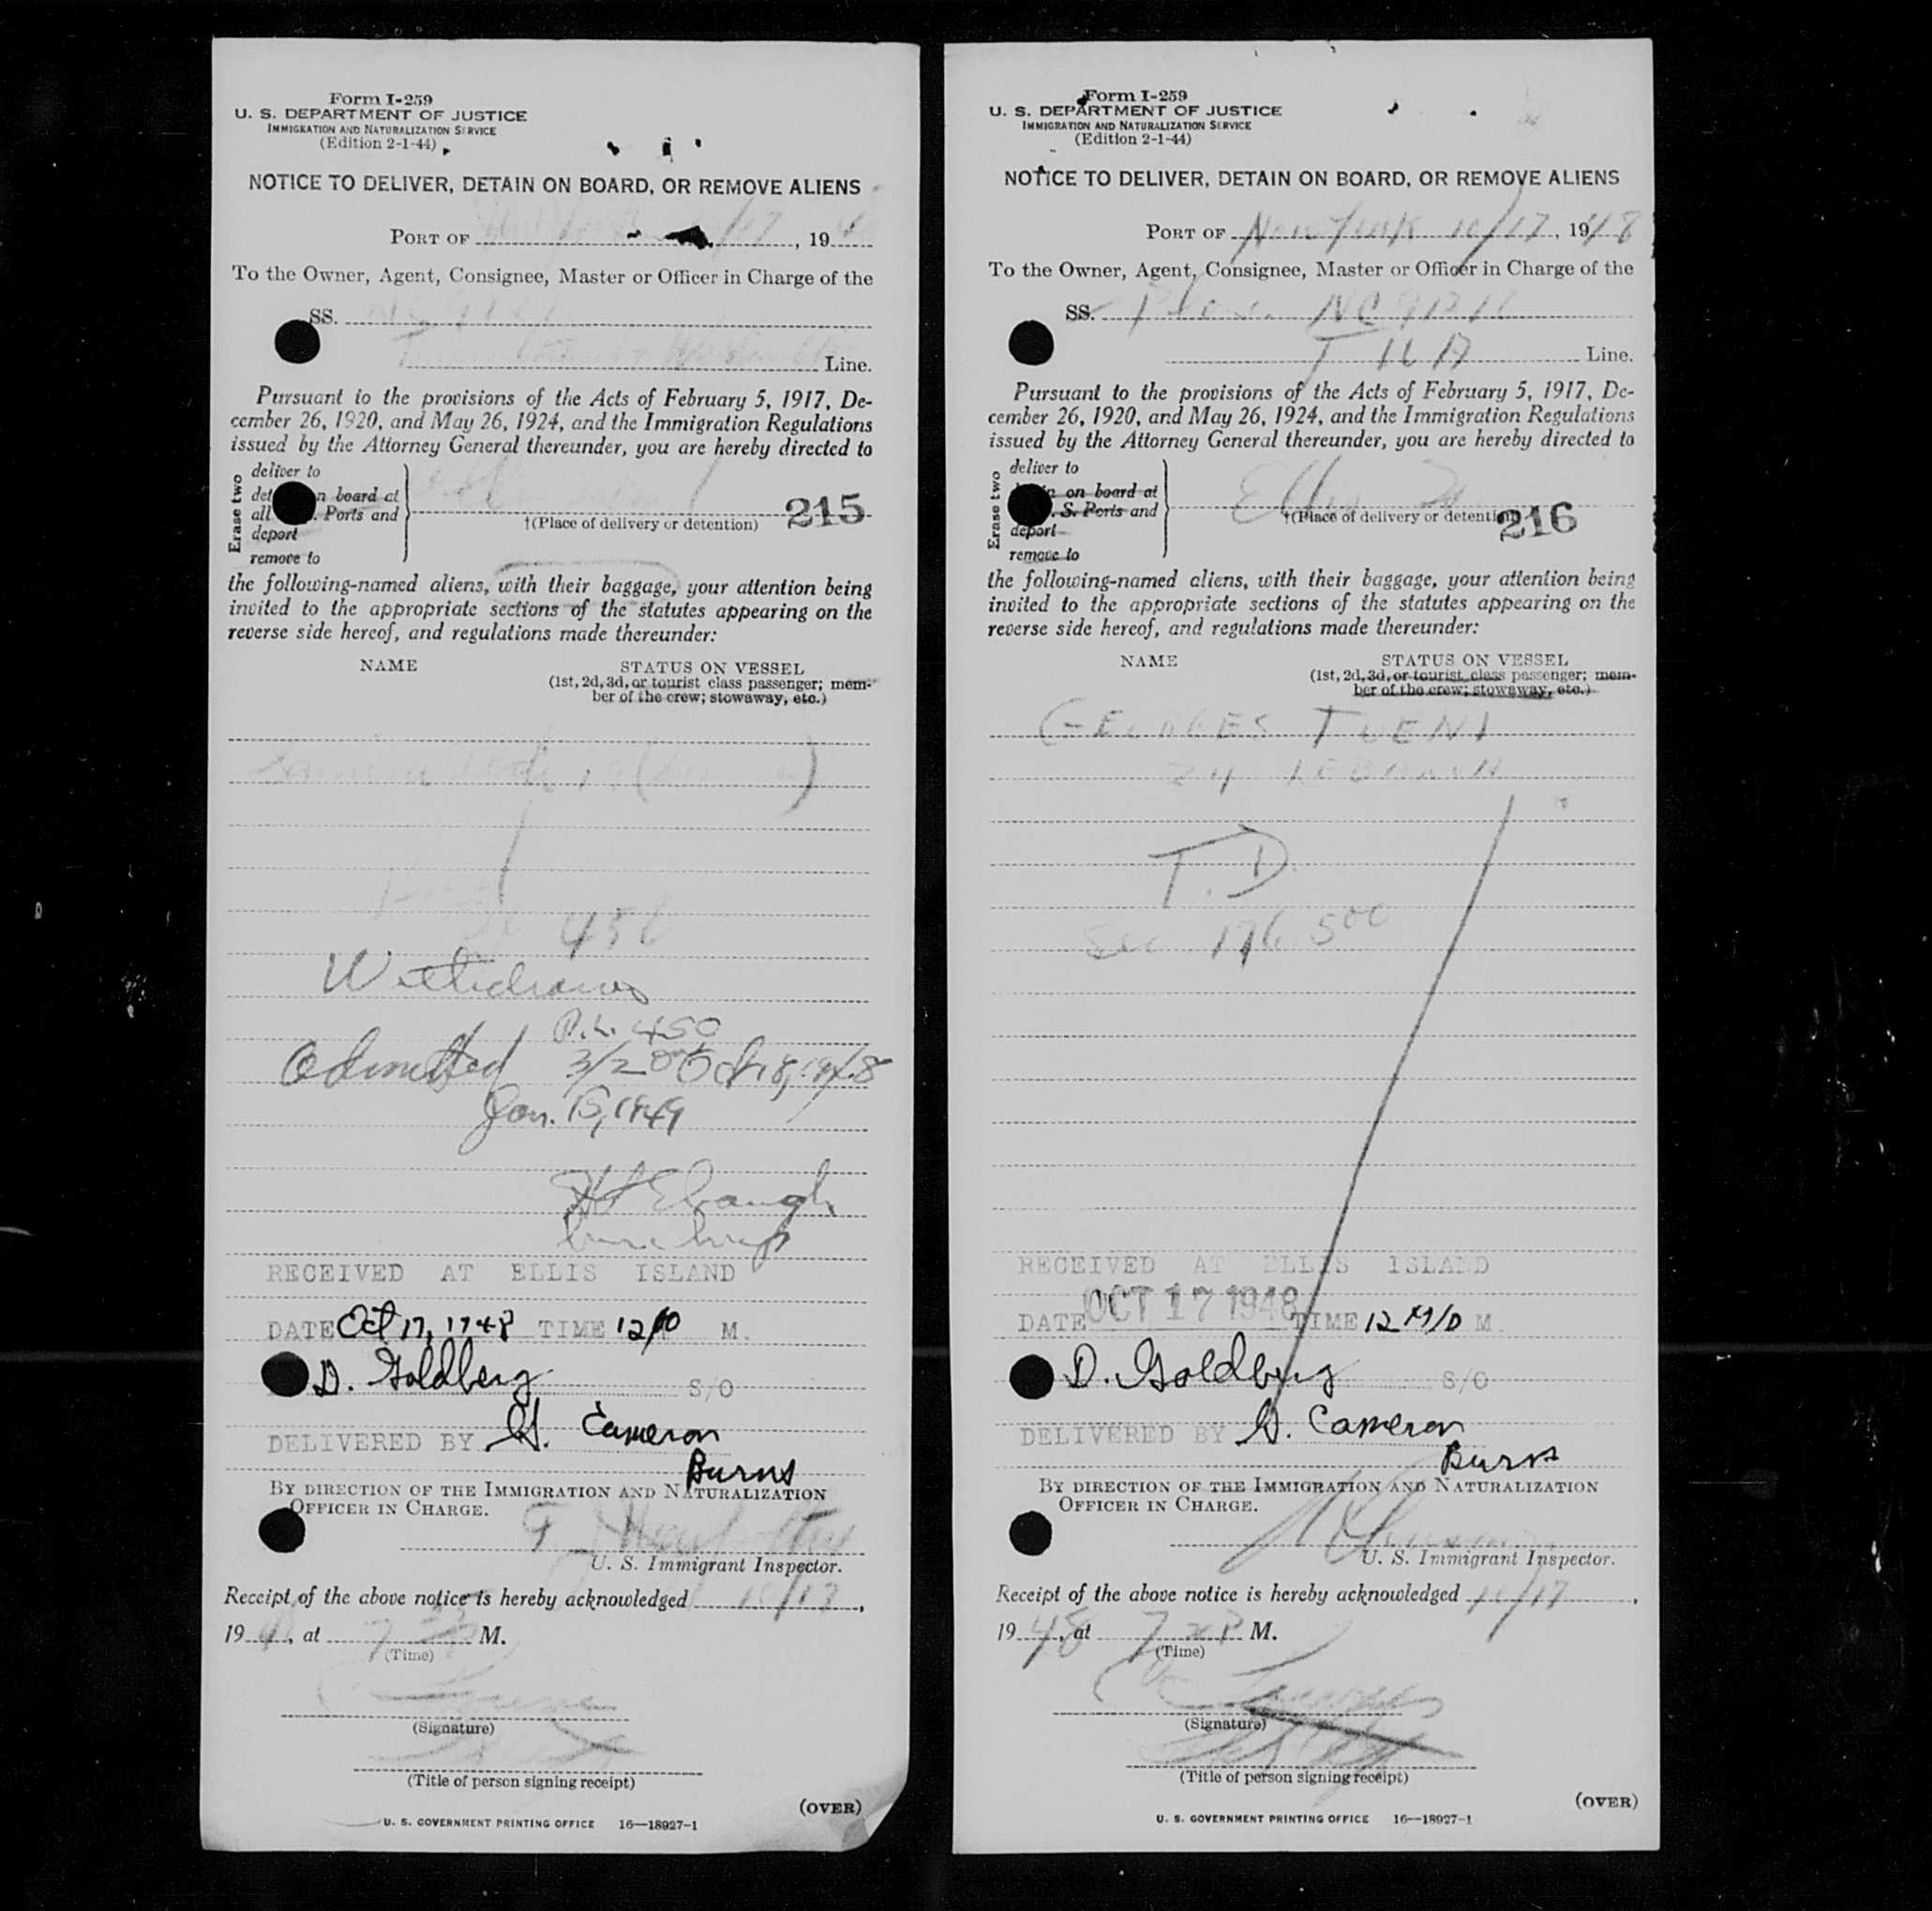 Form I-259
U. S. DEPARTMENT OF JUSTICE
IMMIGRATION AND NATURALIZATION SERVICE
(Edition 2-1-44)
NOTICE TO DELIVER, DETAIN ON BOARD, OR REMOVE ALIENS
PORT OF /17, 19
To the Owner, Agent, Consignee, Master or Officer in Charge of the
SS.
Line.
Pursuant to the provisions of the Acts of February 5, 1917, De-
cember 26, 1920, and May 26, 1924, and the Immigration Regulations
issued by the Attorney General thereunder, you are hereby directed to
Erase two
deliver to
det n board at
all . Ports and
deport
remove to
†(Place of delivery or detention) 215
the following-named aliens, with their baggage, your attention being
invited to the appropriate sections of the statutes appearing on the
reverse side hereof, and regulations made thereunder:
NAME STATUS ON VESSEL
(1st, 2d, 3d, or tourist class passenger; mem-
ber of the crew; stowaway, etc.)
Withdrawn
P.L. 450
Admitted 3/2 Oct 18, 1948
Jan. 15, 1949
Ebaugh
RECEIVED AT ELLIS ISLAND
DATE Oct 17, 1948 TIME 12 M.
D. Goldberg S/O
DELIVERED BY G. Cameron
Burns
BY DIRECTION OF THE IMMIGRATION AND NATURALIZATION
OFFICER IN CHARGE.
U. S. Immigrant Inspector.
Receipt of the above notice is hereby acknowledged 10/17,
19 4, at 7 M.
(Time)
(Signature)
(Title of person signing receipt)
(OVER)
U. S. GOVERNMENT PRINTING OFFICE 16—18927-1
Form I-259
U. S. DEPARTMENT OF JUSTICE
IMMIGRATION AND NATURALIZATION SERVICE
(Edition 2-1-44)
NOTICE TO DELIVER, DETAIN ON BOARD, OR REMOVE ALIENS
PORT OF New York 10/17, 1948
To the Owner, Agent, Consignee, Master or Officer in Charge of the
SS. Plane NC
Line.
Pursuant to the provisions of the Acts of February 5, 1917, De-
cember 26, 1920, and May 26, 1924, and the Immigration Regulations
issued by the Attorney General thereunder, you are hereby directed to
Erase two
deliver to
n on board at
. S. Ports and
deport
remove to
Ellis
†(Place of delivery or detention) 216
the following-named aliens, with their baggage, your attention being
invited to the appropriate sections of the statutes appearing on the
reverse side hereof, and regulations made thereunder:
NAME STATUS ON VESSEL
(1st, 2d, 3d, or tourist class passenger; mem-
ber of the crew; stowaway, etc.)
GEORGES TUENI
24 LEBANON
T.D.
Sec 176.500
RECEIVED AT ELLIS ISLAND
DATE OCT 17 1948 TIME 12 M.
D. Goldberg S/O
DELIVERED BY G. Cameron
Burns
BY DIRECTION OF THE IMMIGRATION AND NATURALIZATION
OFFICER IN CHARGE.
U. S. Immigrant Inspector.
Receipt of the above notice is hereby acknowledged 10/17,
1948, at 7 P M.
(Time)
(Signature)
(Title of person signing receipt)
(OVER)
U. S. GOVERNMENT PRINTING OFFICE 16—18927-1